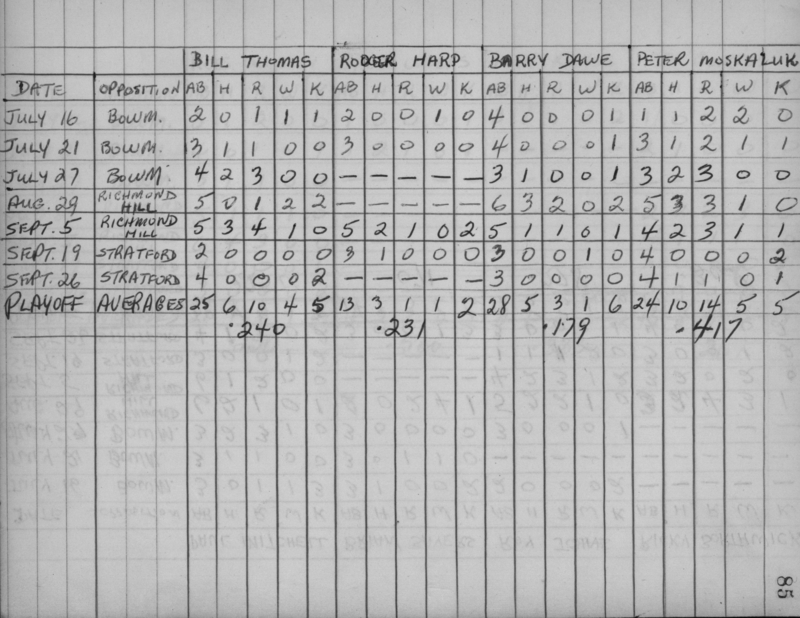 BILL THOMAS ROGER HARP BARRY DAWE PETER MOSKALUK
DATE OPPOSITION AB H R W K AB H R W K AB H R W K AB H R W K
JULY 16 BOWM. 2 0 1 1 1 2 0 0 1 0 4 0 0 0 1 1 1 2 2 0
JULY 21 BOWM. 3 1 1 0 0 3 0 0 0 0 4 0 0 0 1 3 1 2 1 1
JULY 27 BOWM. 4 2 3 0 0 — — — — — 3 1 0 0 1 3 2 3 0 0
AUG. 29 RICHMOND HILL 5 0 1 2 2 — — — — — 6 3 2 0 2 5 3 3 1 0
SEPT. 5 RICHMOND HILL 5 3 4 1 0 5 2 1 0 2 5 1 1 0 1 4 2 3 1 1
SEPT. 19 STRATFORD 2 0 0 0 0 3 1 0 0 0 3 0 0 1 0 4 0 0 0 2
SEPT. 26 STRATFORD 4 0 0 0 2 — — — — — 3 0 0 0 0 4 1 1 0 1
PLAYOFF AVERAGES 25 6 10 4 5 13 3 1 1 2 28 5 3 1 6 24 10 14 5 5
.240 .231 .179 .417
85